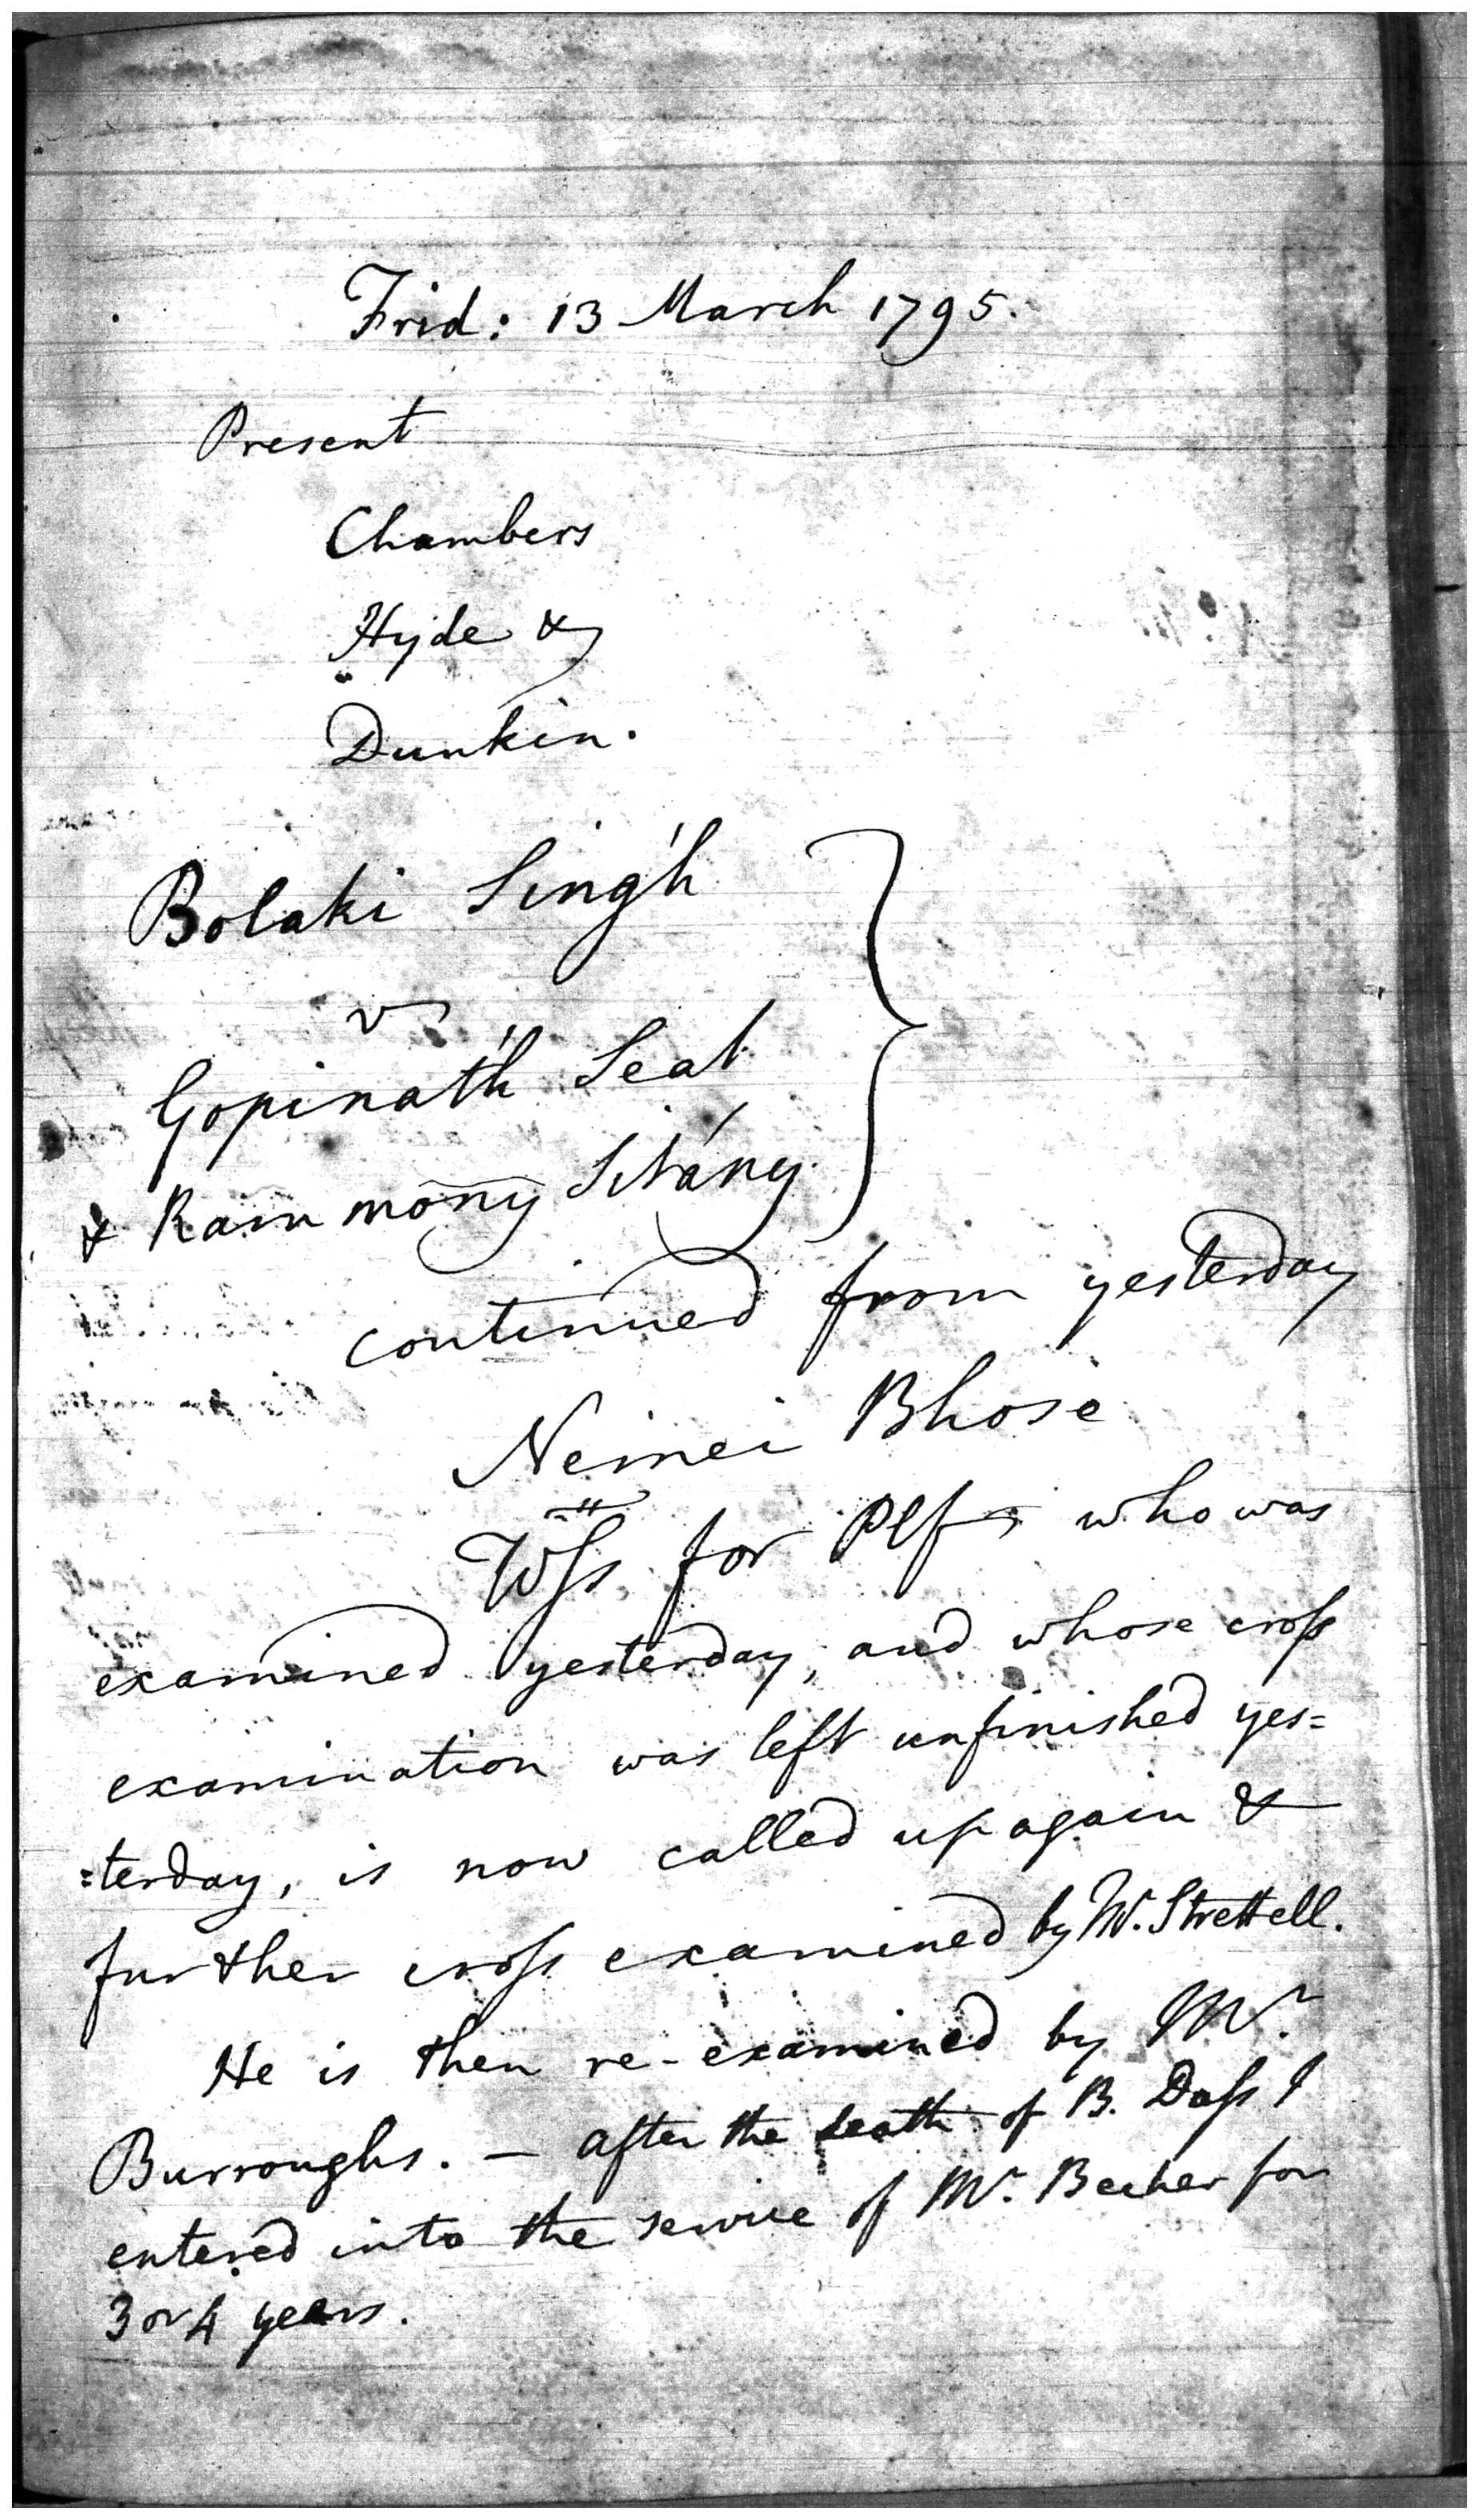 Frid: 13 March 1795.
Present
Chambers
Hyde &
Dunkin.
Bolaki Singh
v
Gopinath Seat
& Ram mony
continued from yesterday
Nemei Bhose
Wſs for Plf who was
examined yesterday, and whose croſs
examination was left unfinished yes=
=terday, is now called up again &
further croſs examined by Mr. Strettell.
He is then re-examined by Mr.
Burroughs. — after the death of B. Daſs I
entered into the service of Mr. Becher for
3 or 4 years.